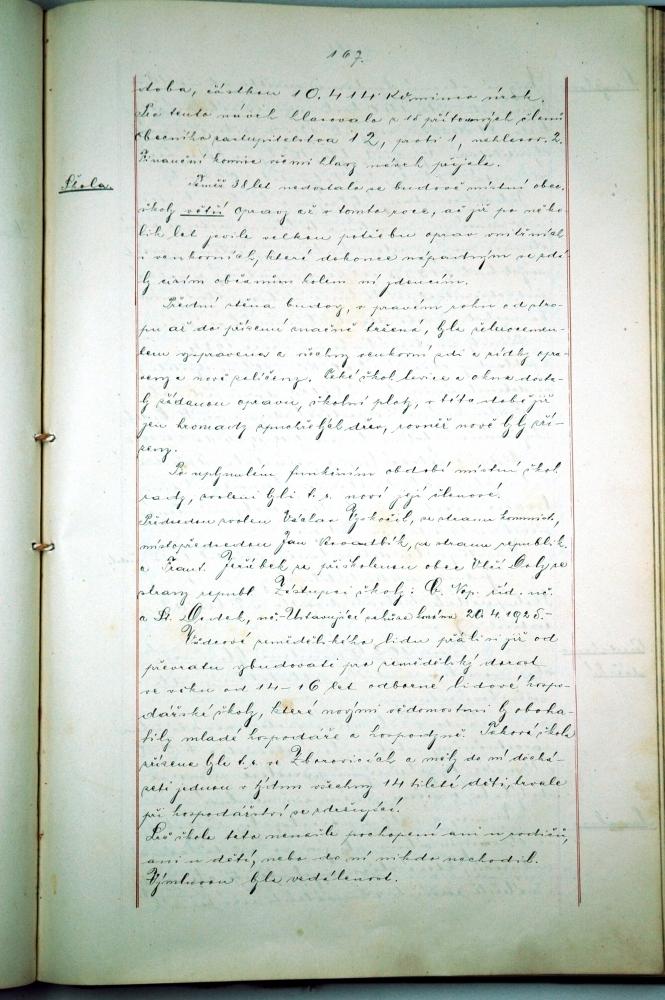 167.
doba, částkou 10.414 Kč mimo úrok.
Pro tento návrh hlasovalo z 15 přítomných členů
obecního zastupitelstva 12, proti 1, nehlasov. 2.
Finanční komise všemi hlasy návrh přijala.
Škola.
Téměř 38 let nedostalo se budově místní obec.
školy větší opravy až v tomto roce, ač již po něko-
lik let jevila velkou potřebu oprav vnitřních
i venkovních, která dokonce nápadným se zdá-
ly cizím občanům kolem ní jdoucím.
Přední stěna budovy, v pravém rohu od stro-
pu až do přízemí značně tržená, byla železocemen-
tem vypravena a všechny venkovní zdi a římsy opra-
veny a nově zalíčeny. Také škol. lavice a okna dosta-
ly žádanou opravu, školní ploty, v této době již
jen hromady zpuchřelých dřev, rovněž nově byly zří-
zeny.
Po uplynulém funkčním období místní škol.
rady, zvoleni byli t. r. noví její členové.
Předsedou zvolen Václav Vyskočil, ze strany kommich,
místopředsedou Jan, ze strany republik.
a Frant. Jeřábek ze přiškolenou obec Vlčí Doly ze
strany republ. Zástupci školy: Č. Nop. říd. uč.
a St. Dědek, uč. Ustavující schůze konána 20. 4. 1928.-
Vůdcové zemědělského lidu přáli si již od
převratu vybudovati pro zemědělský dorost
ve věku od 14-16 let odborné lidové hospo-
dářské školy, které novými vědomostmi by oboha-
tily mladé hospodáře a hospodyně. Taková škola
zřízena byla t. r. ve Zborovicích a měly do ní dochá-
zeti jednou v týdnu všechny 14 tileté děti, trvale
při hospodářství se zdržující.
Leč škola tato nenašla pochopení ani u rodičů,
ani u dětí, nebo do ní nikdo nechodil.
Výmluvou byla vzdálenost.